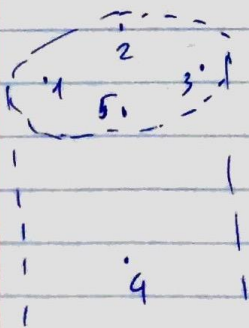 2
1 3
5
4